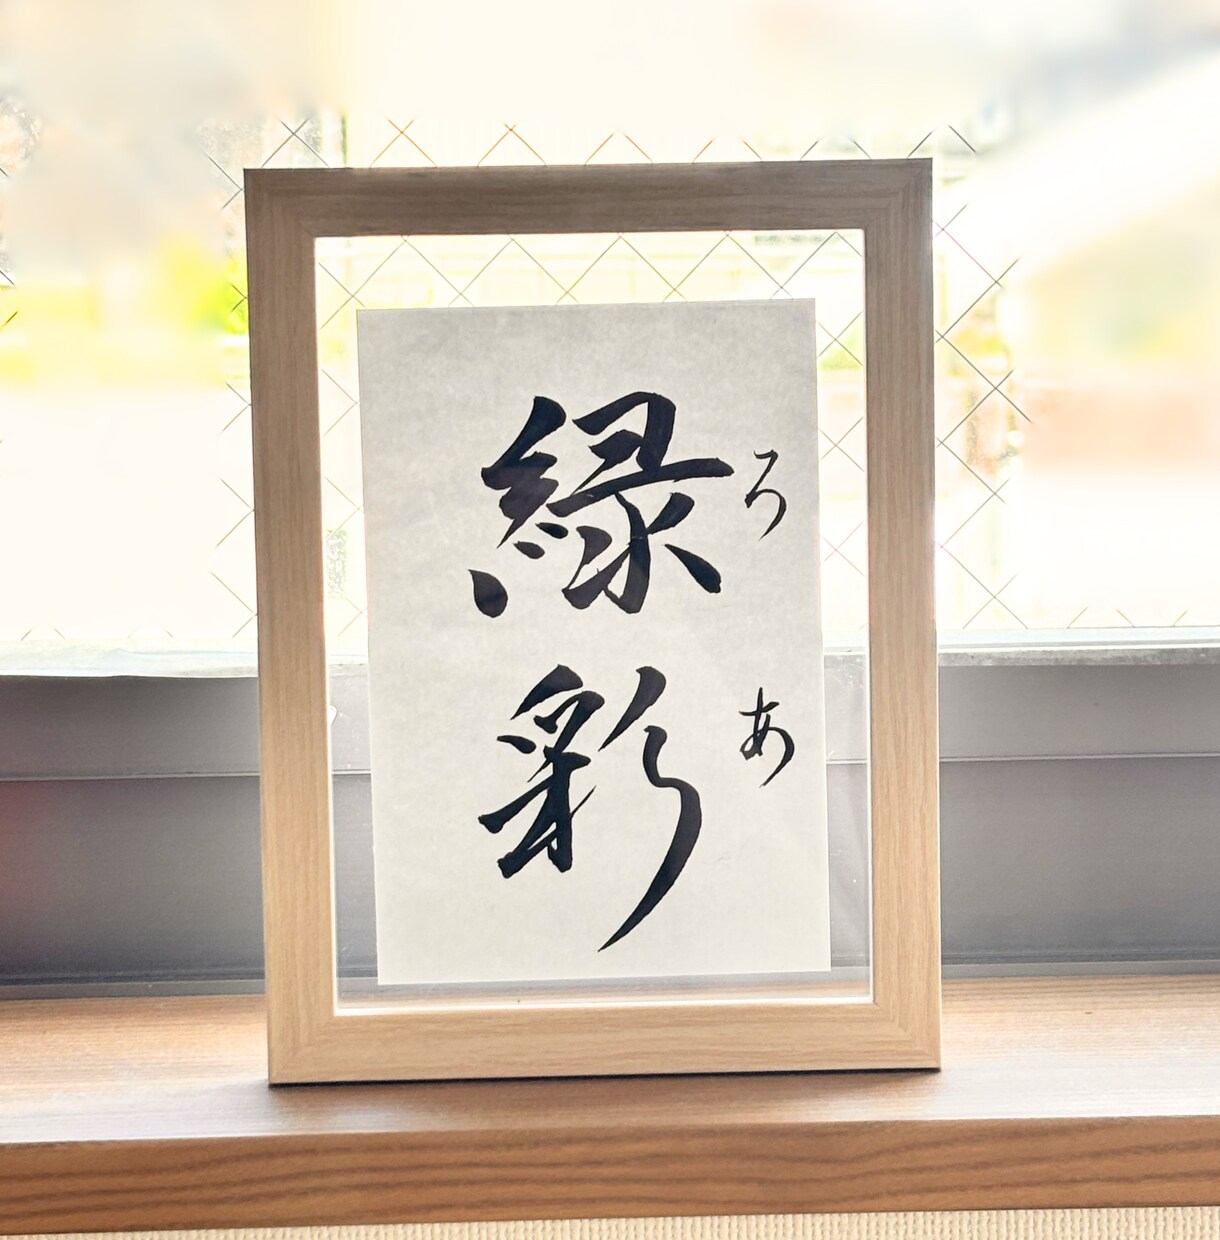 緑彩
ろあ